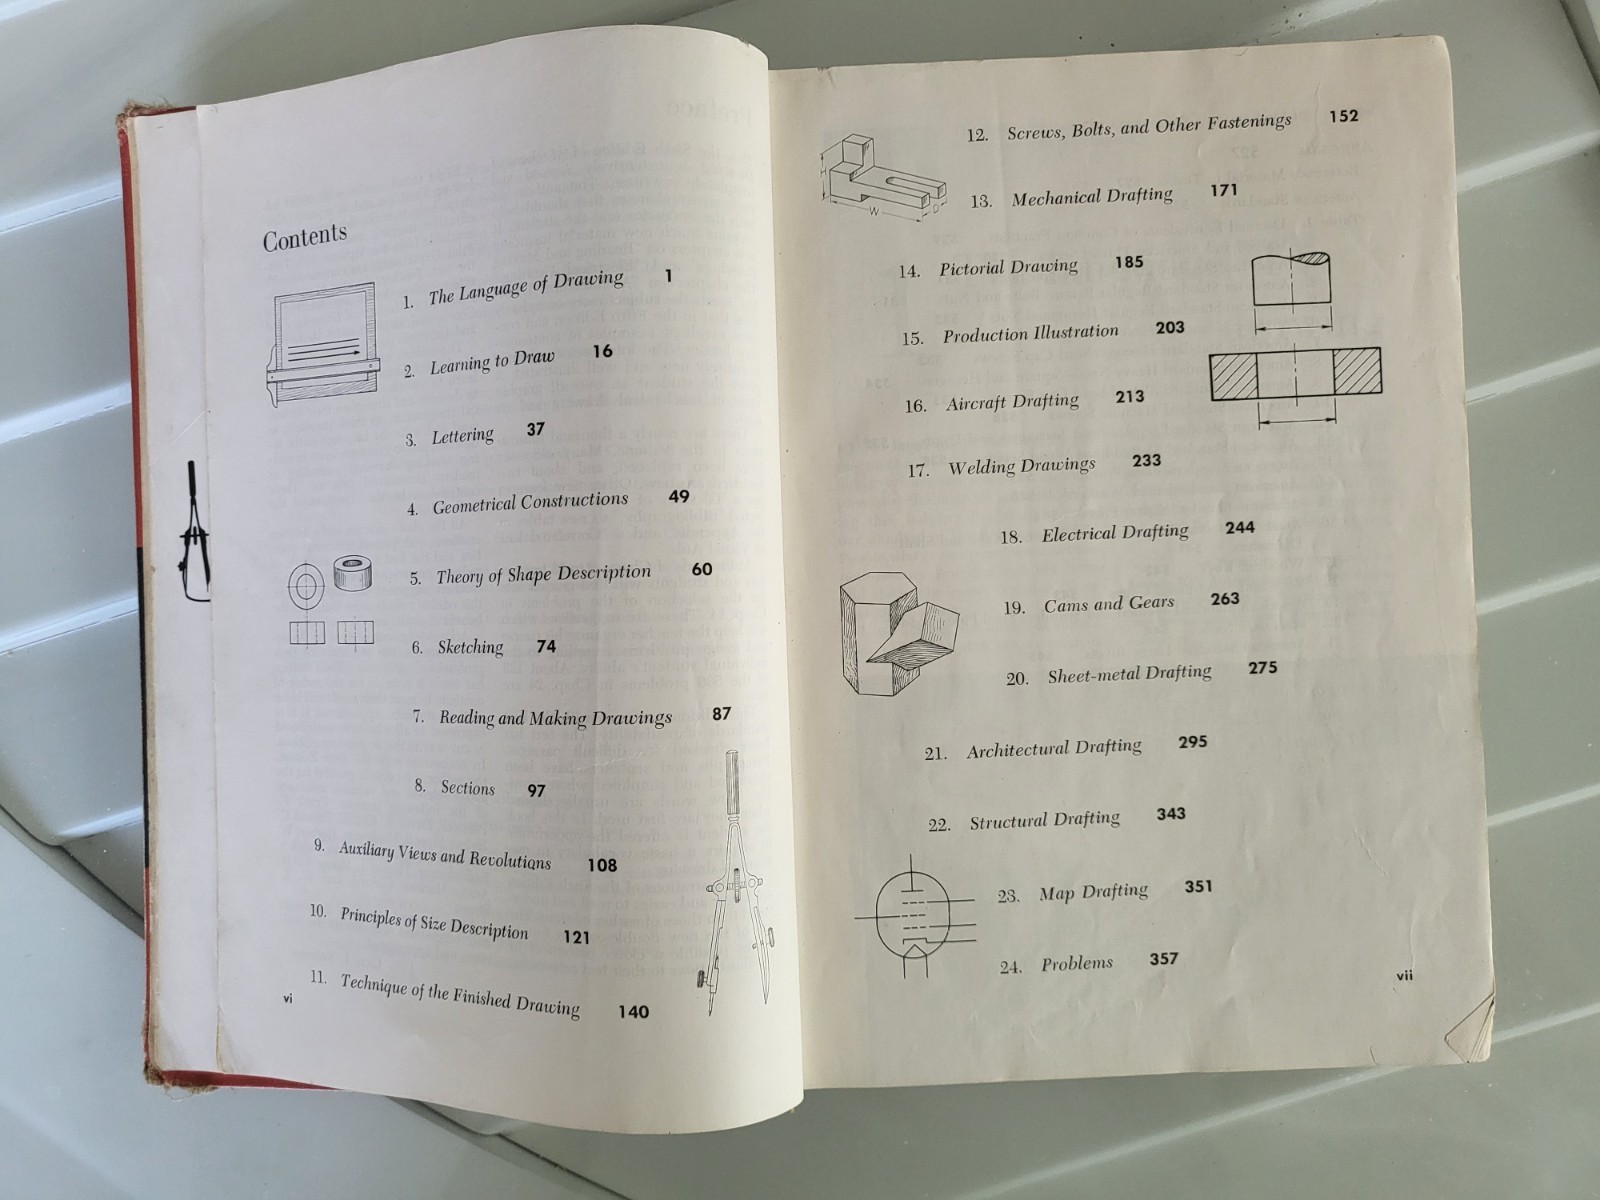 Contents
1. The Language of Drawing 1
2. Learning to Draw 16
3. Lettering 37
4. Geometrical Constructions 49
5. Theory of Shape Description 60
6. Sketching 74
7. Reading and Making Drawings 87
8. Sections 97
9. Auxiliary Views and Revolutions 108
10. Principles of Size Description 121
11. Technique of the Finished Drawing 140
vi
12. Screws, Bolts, and Other Fastenings 152
13. Mechanical Drafting 171
H
W
D
14. Pictorial Drawing 185
15. Production Illustration 203
16. Aircraft Drafting 213
17. Welding Drawings 233
18. Electrical Drafting 244
19. Cams and Gears 263
20. Sheet-metal Drafting 275
21. Architectural Drafting 295
22. Structural Drafting 343
23. Map Drafting 351
24. Problems 357
vii